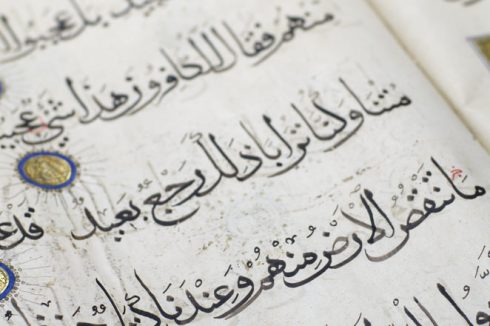 بل عجبوا
منهم فقال الكافرون هذا شي عجيب
متنا وكنا ترابا ذلك رجع بعيد قد
مَا تنقُصُ الارضُ مِنْهُمْ وَعِنْدَنَا